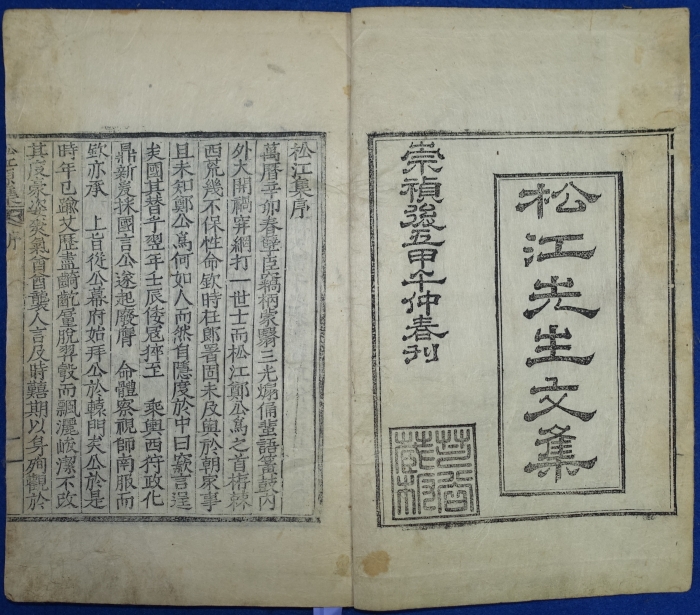 松江先生文集
崇禎後五甲午仲春刊
松江集序
萬曆辛卯春孼臣竊柄蒙翳三光煽俑蜚語簧鼓內
外大開禍穽網打一世士而松江鄭公爲之首栫棘
西荒幾不保性命欽時在郞署固未及與於朝家事
且未知鄭公爲何如人而然自隱度於中曰竄言逞
矣國其替乎翌年壬辰倭寇猝至 乘輿西狩政化
鼎新爰採國言公遂起廢膺 命體察視師南服而
欽亦承 上旨從公幕府始拜公於轅門矣公於是
時年已踰艾歷盡謫脫羿彀而飄灑峻潔不改
其度豪姿爽氣酋酋襲人言及時艱期以身殉觀於